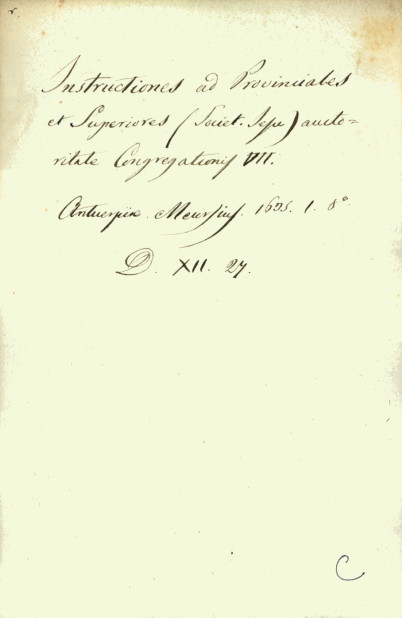 Instructiones ad Provinciales
et Superiores (Societ. Jesu) aucto=
ritate Congregationis VII.
Antuerpiæ. Meursius. 1635. 1. 8°
D. XII. 27.
C